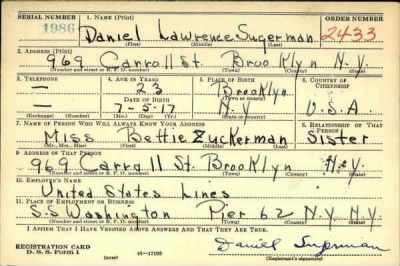 SERIAL NUMBER 1. NAME (Print) ORDER NUMBER
1986 Daniel Lawrence Sugerman 2433
(First) (Middle) (Last)
2. ADDRESS (Print)
969 Carroll St. Brooklyn N.Y.
(Number and street or R. F. D. number) (Town) (County) (State)
3. TELEPHONE 4. AGE IN YEARS 5. PLACE OF BIRTH 6. COUNTRY OF CITIZENSHIP
— 23 Brooklyn
DATE OF BIRTH (Town or county)
— 7-5-17 N.Y U.S.A
(Exchange) (Number) (Mo.) (Day) (Yr.) (State or country)
7. NAME OF PERSON WHO WILL ALWAYS KNOW YOUR ADDRESS 8. RELATIONSHIP OF THAT PERSON
Miss Bettie Zuckerman Sister
(Mr., Mrs., Miss) (First) (Middle) (Last)
9. ADDRESS OF THAT PERSON
969 Carroll St. Brooklyn N.Y
(Number and street or R. F. D. number) (Town) (County) (State)
10. EMPLOYER'S NAME
United States Lines
11. PLACE OF EMPLOYMENT OR BUSINESS
S.S Washington Pier 62 N.Y. N.Y
(Number and street or R. F. D. number) (Town) (County) (State)
I AFFIRM THAT I HAVE VERIFIED ABOVE ANSWERS AND THAT THEY ARE TRUE.
REGISTRATION CARD Daniel Sugerman
D. S. S. Form 1 (over) 16—17105 (Registrant's signature)